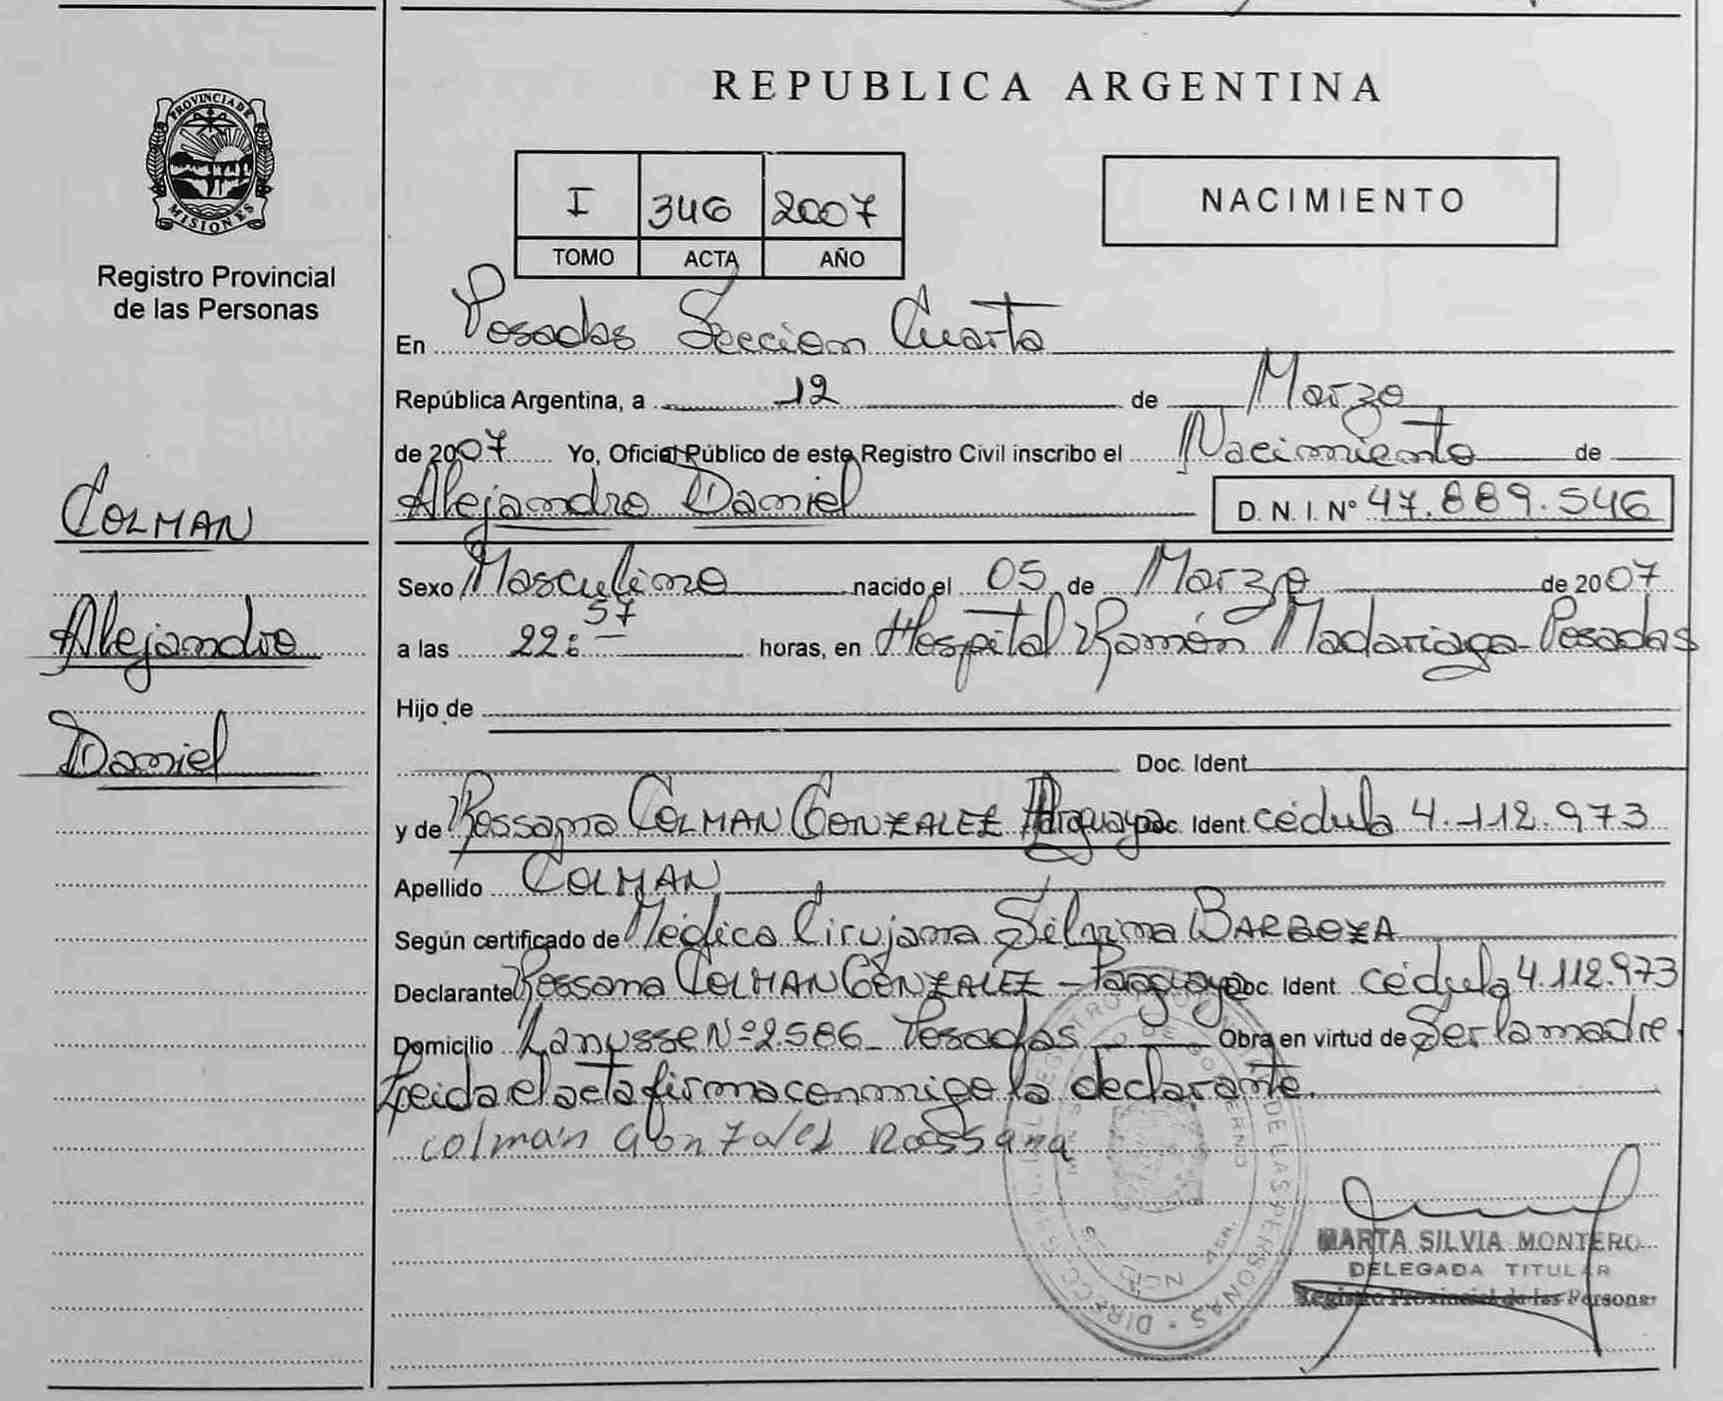 REPUBLICA ARGENTINA
PROVINCIA DE MISIONES
Registro Provincial
de las Personas
I 346 2007
TOMO ACTA AÑO
NACIMIENTO
En Posadas Seccion Cuarta
República Argentina, a 12 de Marzo
de 2007 Yo, Oficial Público de este Registro Civil inscribo el Nacimiento de
Alejandro Daniel D. N. I. Nº 47.889.546
COLMAN
Alejandro
Daniel
Sexo Masculino nacido el 05 de Marzo de 2007
a las 22:57 horas, en Hospital Ramón Madariaga - Posadas
Hijo de
Doc. Ident
y de Rossana COLMAN GONZALEZ Paraguaya Doc. Ident cédula 4.112.973
Apellido COLMAN
Según certificado de Médica Cirujana Silvina BARBOZA
Declarante Rossana COLMAN GONZALEZ - Paraguaya Doc. Ident. cédula 4.112.973
Domicilio Lanusse Nº 2.586 - Posadas Obra en virtud de Ser la madre.
Leida el acta firma conmigo la declarante.
Colman Gonzalez Rossana
MARTA SILVIA MONTERO
DELEGADA TITULAR
Registro Provincial de las Personas